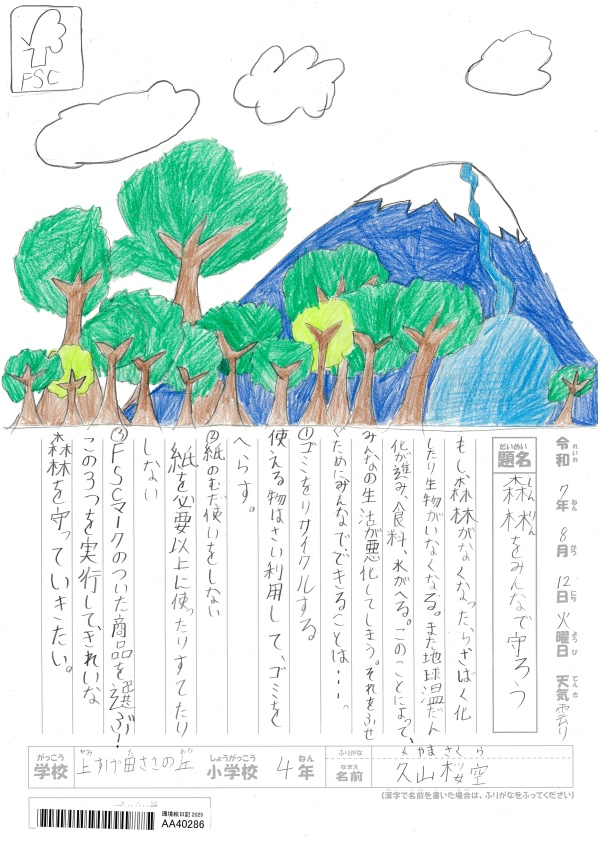 FSC
令和 7年 8月 12日 火曜日 天気 曇り
れいわ ねん がつ にち ようび てんき
だいめい
題名
しんりん
森林をみんなで守ろう
もし森林がなくなったらさばく化
したり生物がいなくなる。また地球温だん
化が進み、食料、水がへる。このことによって、
みんなの生活が悪化してしまう。それをふせ
ぐためにみんなで、できることは・・・。
①ゴミをリサイクルする
使える物はさい利用して、ゴミを
へらす。
②紙のむだ使いをしない
紙を必要以上に使ったりすてたり
しない
③FSCマークのついた商品を選ぶ!
この3つを実行して、きれいな
森林を守っていきたい。
がっこう やみ た おか しょうがっこう ねん ふりがな やま さく ら
学校 上すげ田ささの丘 小学校 4年 なまえ 名前 久山 桜空
(漢字で名前を書いた場合は、ふりがなをふってください)
環境絵日記 2025
AA40286